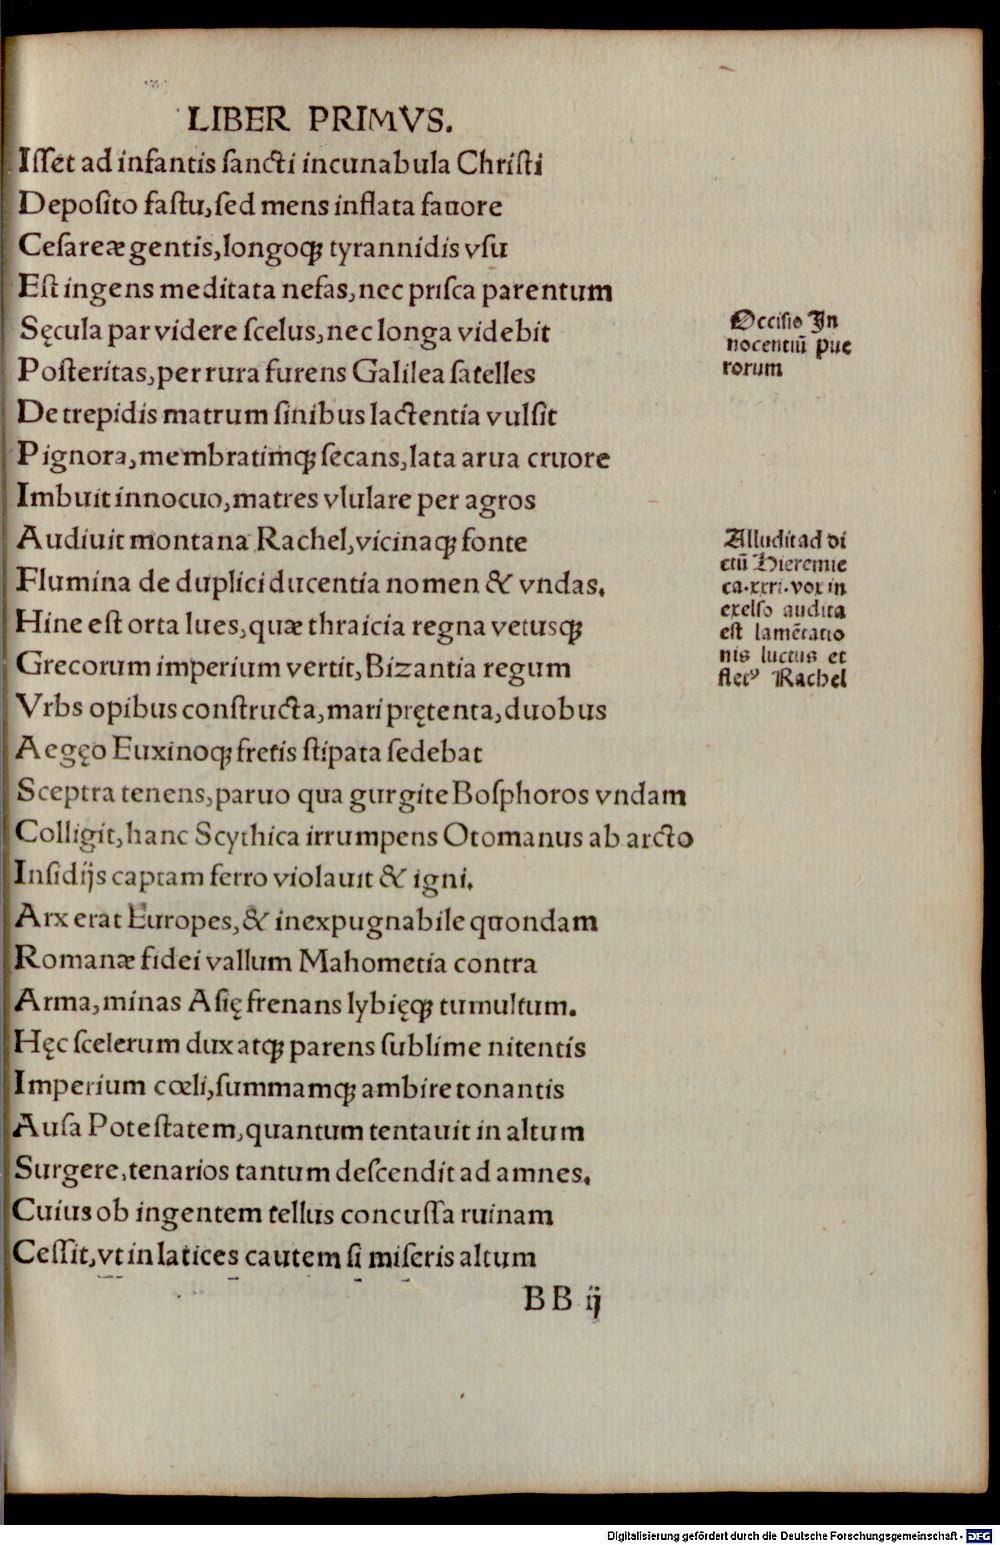 LIBER PRIMVS.
Iſſet ad infantis ſancti incunabula Chriſti
Depoſito faſtu, ſed mens inflata fauore
Ceſareæ gentis, longoqꝫ tyrannidis vſu
Eſt ingens meditata nefas, nec priſca parentum
Sęcula par videre ſcelus, nec longa videbit
Poſteritas, per rura furens Galilea ſatelles
De trepidis matrum ſinibus lactentia vulſit
Pignora, membratimqꝫ ſecans, lata arua cruore
Imbuit innocuo, matres vlulare per agros
Audiuit montana Rachel, vicinaqꝫ fonte
Flumina de duplici ducentia nomen & vndas.
Hinc eſt orta lues, quæ thraicia regna vetusqꝫ
Grecorum imperium vertit, Bizantia regum
Vrbs opibus conſtructa, mari prętenta, duobus
Aegęo Euxinoqꝫ fretis ſtipata ſedebat
Sceptra tenens, paruo qua gurgite Boſphoros vndam
Colligit, hanc Scythica irrumpens Otomanus ab arcto
Inſidijs captam ferro violauit & igni.
Arx erat Europes, & inexpugnabile quondam
Romanæ fidei vallum Mahometia contra
Arma, minas Aſię frenans lybięqꝫ tumultum.
Hęc ſcelerum dux atqꝫ parens ſublime nitentis
Imperium cœli, ſummamqꝫ ambire tonantis
Auſa Poteſtatem, quantum tentauit in altum
Surgere, tenarios tantum deſcendit ad amnes.
Cuius ob ingentem tellus concuſſa ruinam
Ceſſit, vt in latices cautem ſi miſeris altum
BB ij
Occiſio In
nocentiū pue
rorum
Alludit ad di
ctū Hieremie
ca.xxxi. vox in
excelſo audita
eſt lamētatio
nis luctus et
fletꝰ Rachel
Digitalisierung gefördert durch die Deutsche Forschungsgemeinschaft - DFG